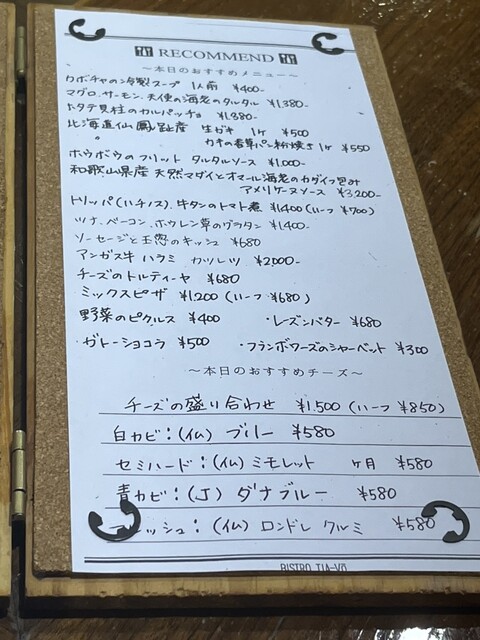 RECOMMEND
～本日のおすすめメニュー～
カボチャの冷製スープ 1人前 ¥400-
マグロ、サーモン、天使の海老のタルタル ¥1,380-
ホタテ貝柱のカルパッチョ ¥1,380-
北海道仙鳳趾産 生ガキ 1ヶ ¥500
カキの香草パン粉焼き 1ヶ ¥550
ホウボウのフリット タルタルソース ¥1,000-
和歌山県産 天然マダイとオマール海老のカダイフ包み
アメリケーヌソース ¥3,200-
トリッパ(ハチノス)、牛タンのトマト煮 ¥1,400 (ハーフ ¥700)
ツナ、ベーコン、ホウレン草のグラタン ¥1,400-
ソーセージと玉葱のキッシュ ¥680
アンガス牛 ハラミ カツレツ ¥2,000-
チーズのトルティーヤ ¥680
ミックスピザ ¥1,200 (ハーフ ¥680)
野菜のピクルス ¥400 ・レーズンバター ¥680
・ガトーショコラ ¥500 ・フランボワーズのシャーベット ¥300
～本日のおすすめチーズ～
チーズの盛り合わせ ¥1,500 (ハーフ ¥850)
白カビ：(仏) ブリー ¥580
セミハード：(仏) ミモレット ヶ月 ¥580
青カビ：(J) ダナブルー ¥580
ッシュ： (仏) ロンドレ クルミ ¥580
BISTRO TIA-VO